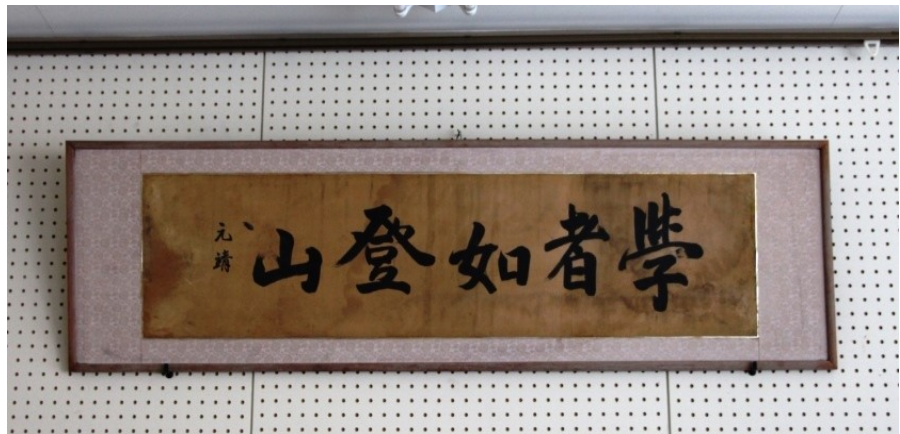 學者如登山
元靖